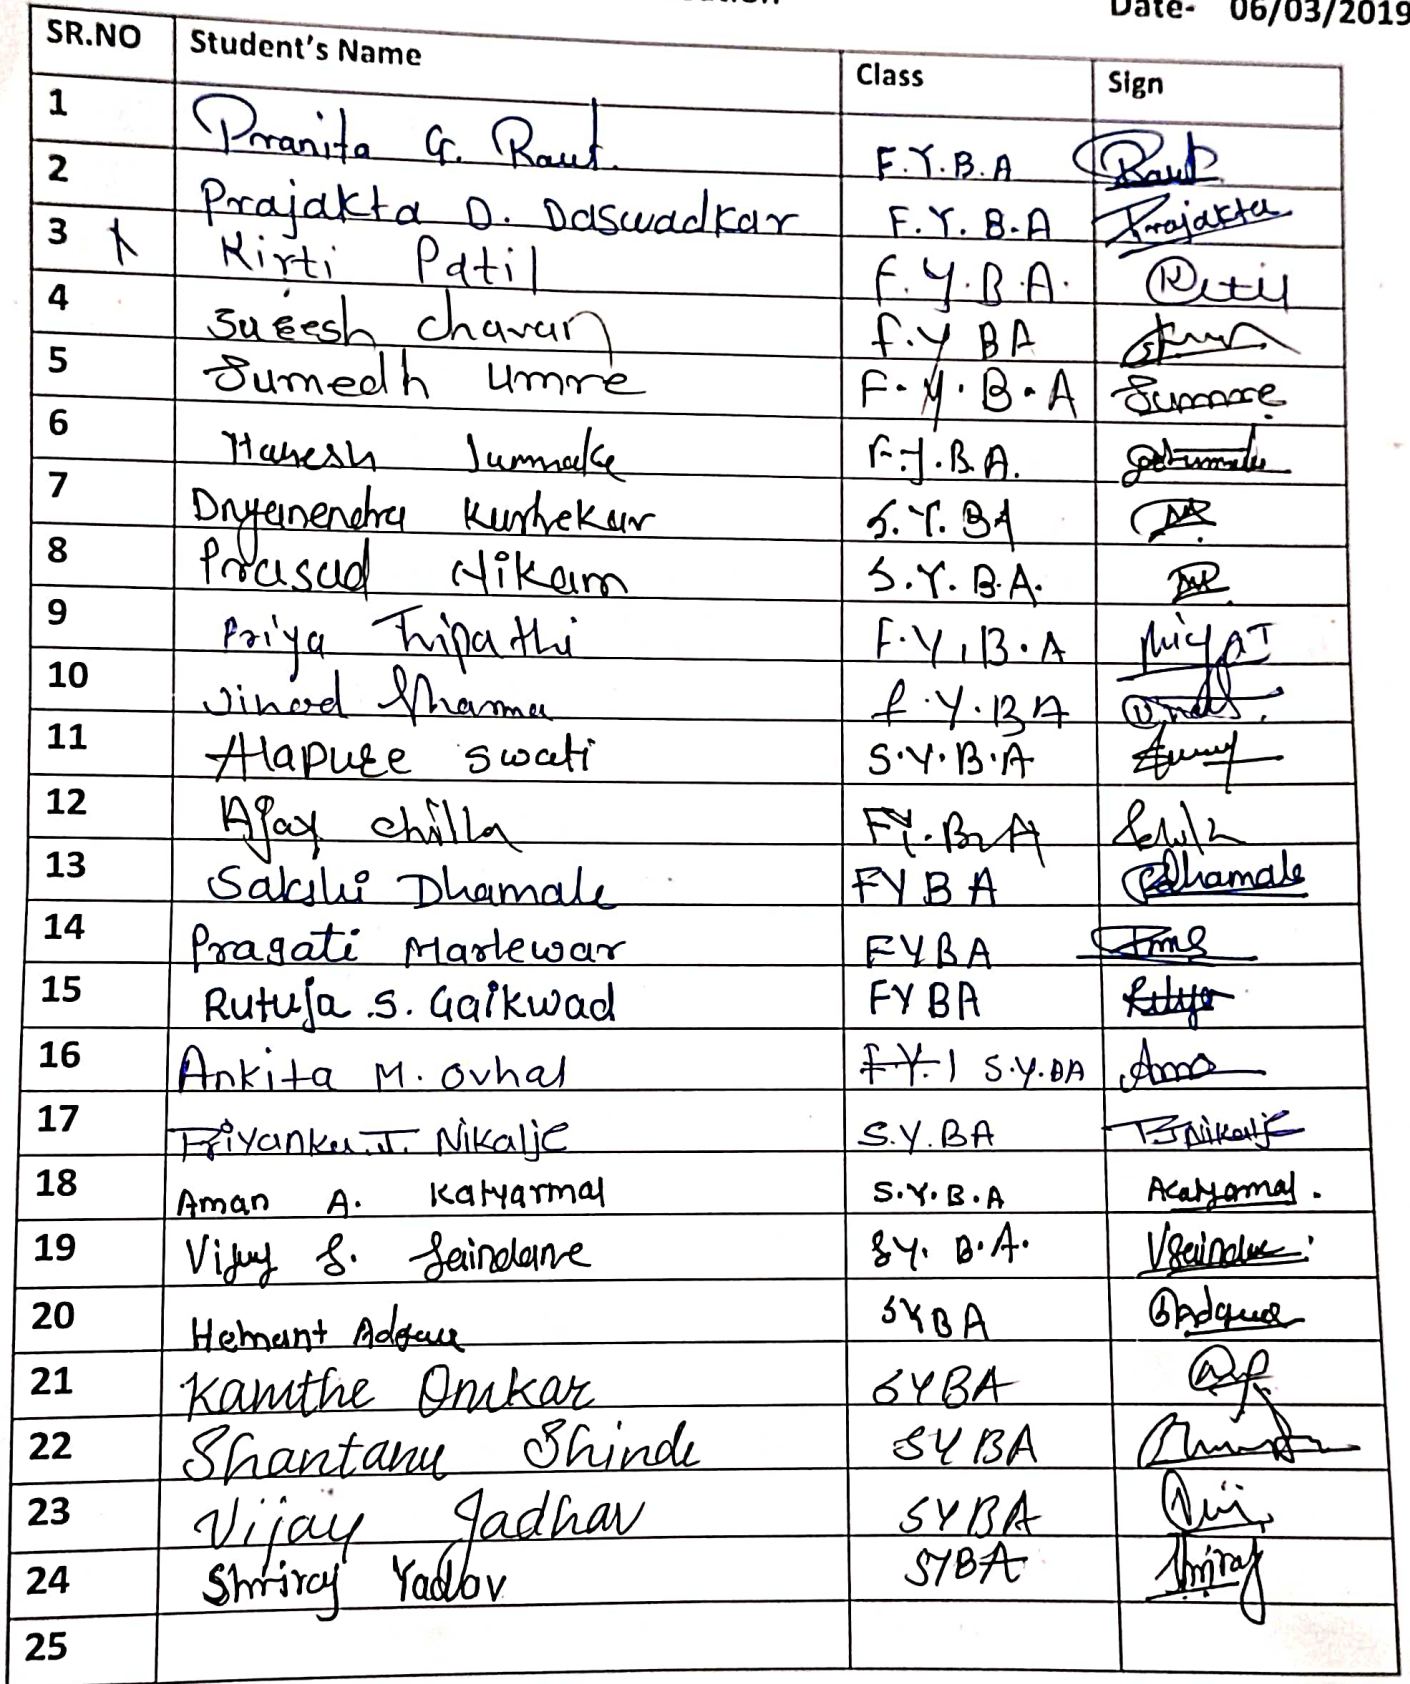 Date- 06/03/2019
SR.NO Student's Name Class Sign
1 Pranita G. Raut. F.Y.B.A Raut
2 Prajakta D. Daswadkar F.Y.B.A Prajakta
3 Kirti Patil F.Y.B.A.
4 Suresh Chavan F.Y BA
5 Sumedh Umre F.Y.B.A
6 Mahesh F.Y.B.A.
7 Dnyanendra Kurhekar S.Y.BA
8 Prasad Nikam S.Y.B.A.
9 Priya Tripathi F.Y.B.A PriyaT
10 Vinod Sharma F.Y.BA
11 Alapure Swati S.Y.B.A
12 Ajay Chilla FY.BA
13 Sakshi Dhamale FYBA Dhamale
14 Pragati Marlewar FYBA
15 Rutuja .S. Gaikwad FYBA
16 Ankita M. Ovhal S.Y.BA
17 Priyanka.J. Nikalje S.Y.BA PJNikalje
18 Aman A. Katyarmal S.Y.B.A
19 Vijay S. Saindane SY. B.A.
20 Hemant SYBA
21 Kamthe Omkar SYBA
22 Shantanu Shinde SYBA
23 Vijay Jadhav SYBA
24 Shriraj Yadav SYBA Shriraj
25